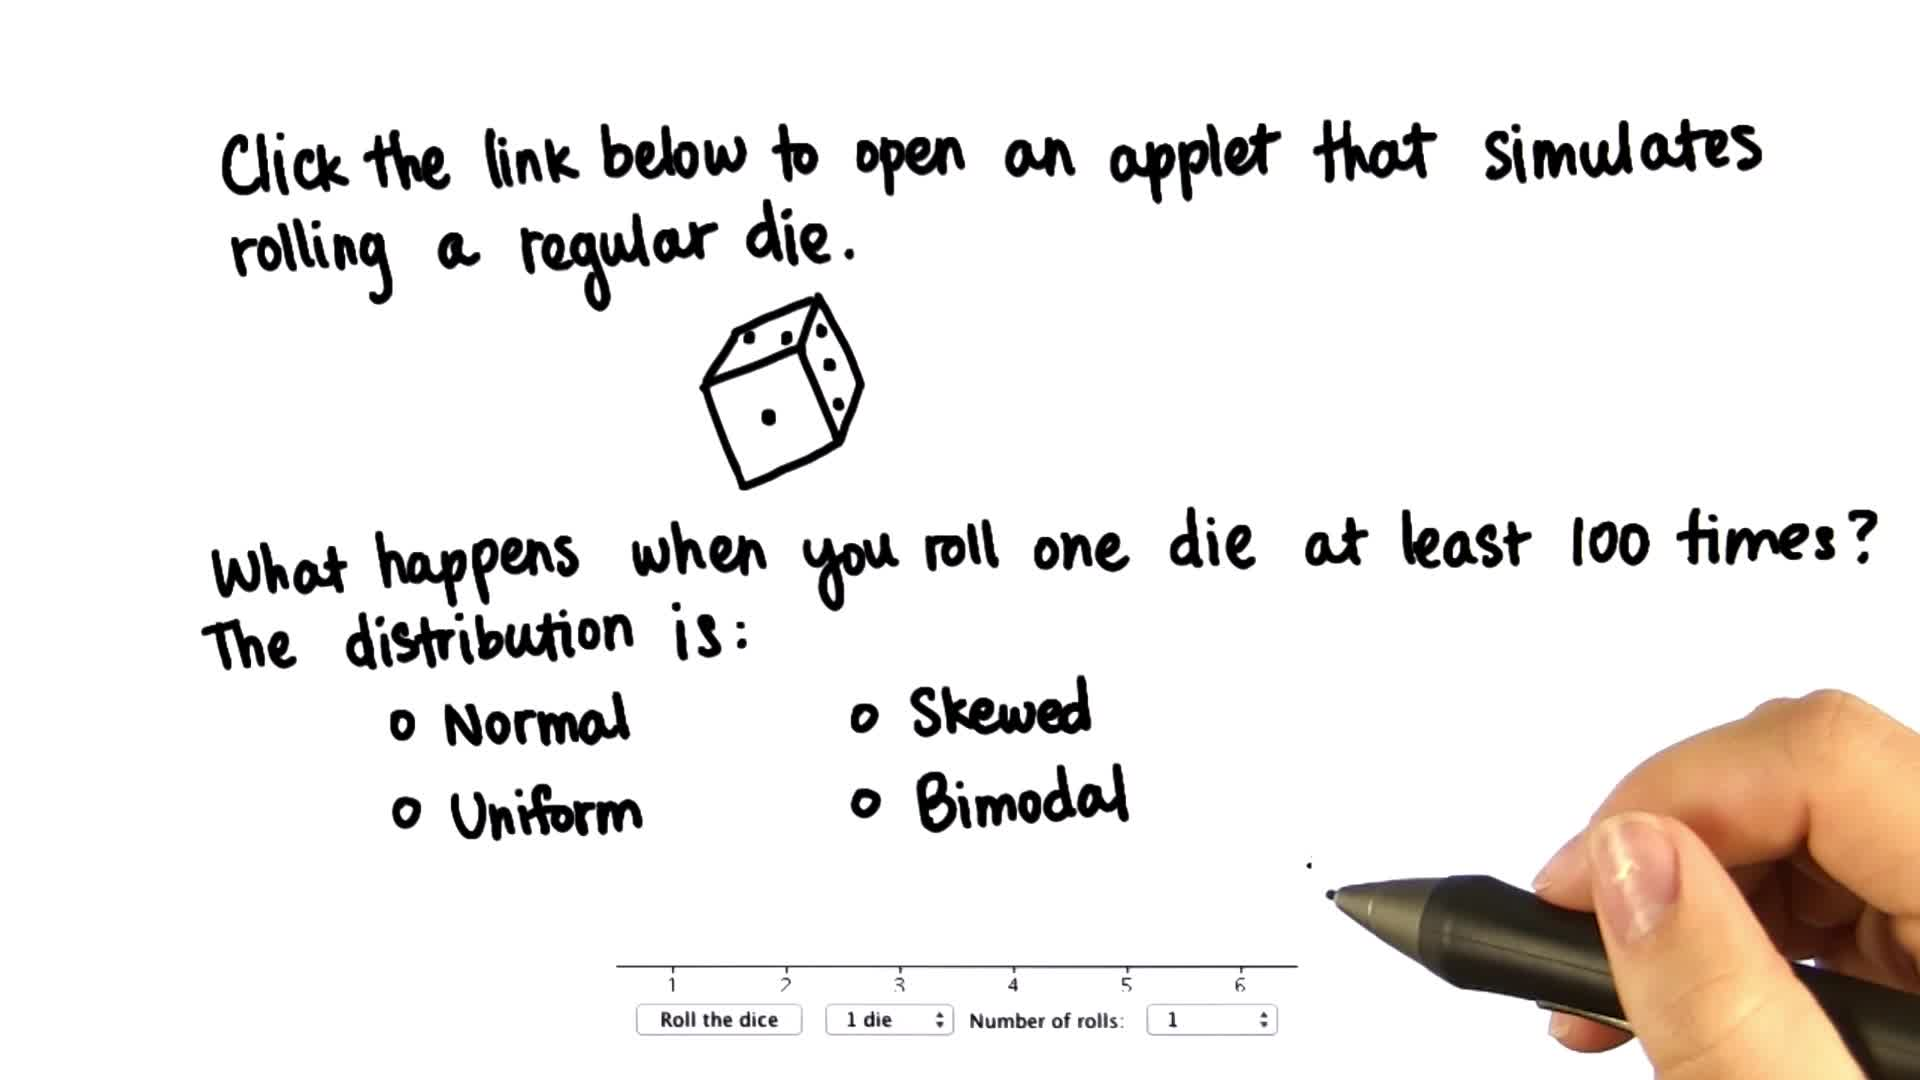 Click the link below to open an applet that simulates
rolling a regular die.
What happens when you roll one die at least 100 times?
The distribution is:
Normal Skewed
Uniform Bimodal
1 2 3 4 5 6
Roll the dice 1 die Number of rolls: 1